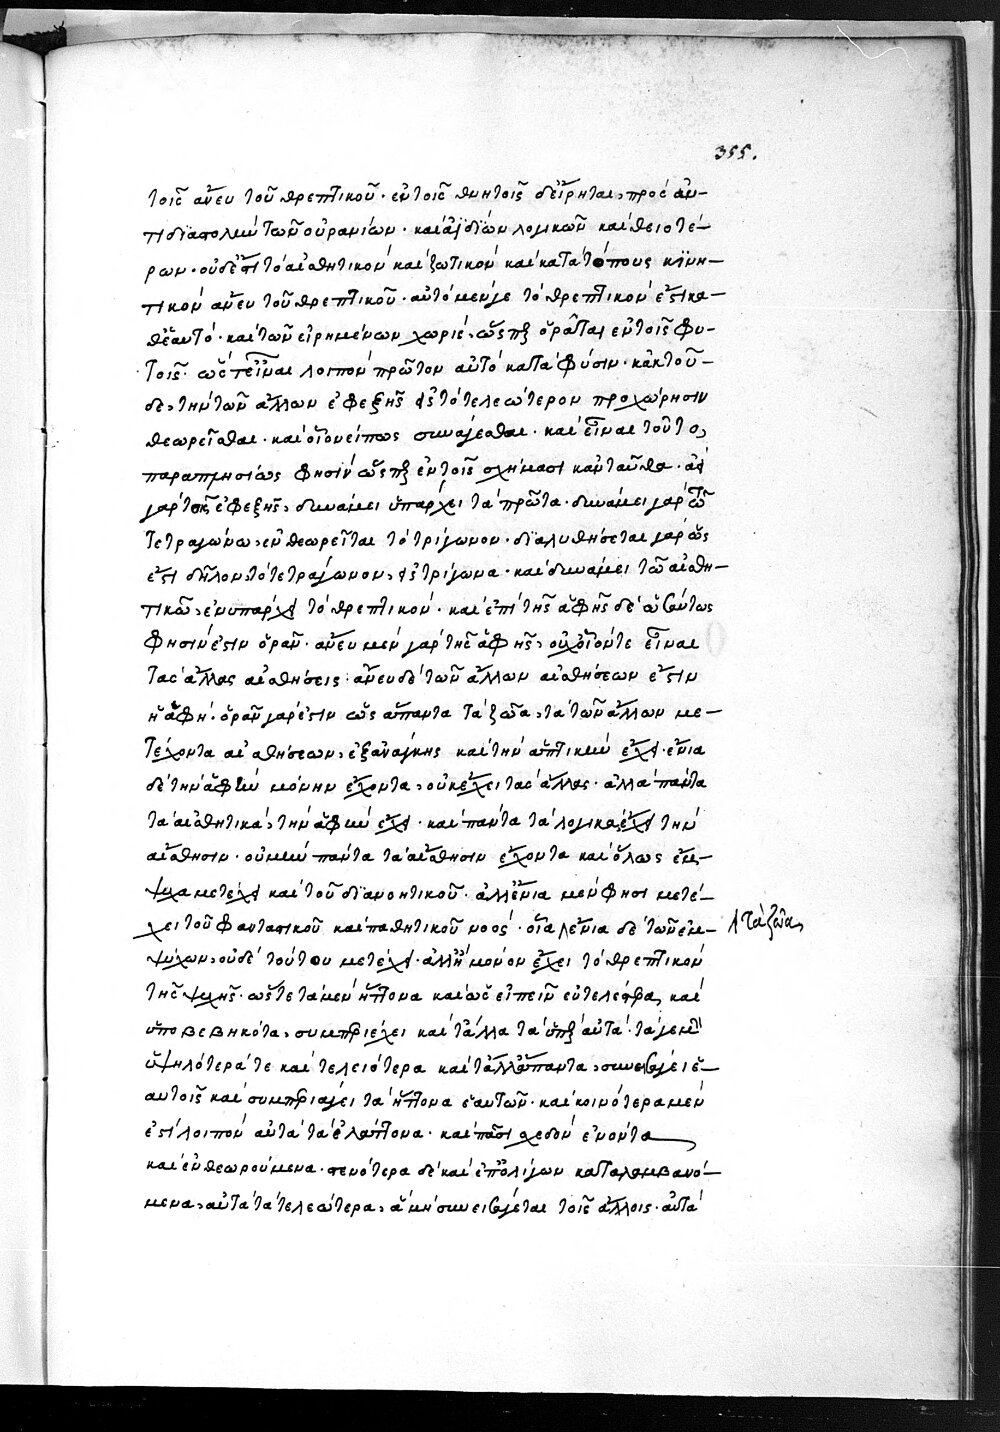 355.
τοῖς ἄνευ τοῦ θρεπτικοῦ· ἐν τοῖς θνητοῖς δ' εἴρηται, πρὸς ἀν-
τιδιαστολὴν τῶν οὐρανίων· καὶ ἀϊδίων λογικῶν καὶ θειοτέ-
ρων· οὐδ' ἔστι τὸ αἰσθητικὸν καὶ ζωτικὸν καὶ κατὰ τόπους κινη-
τικὸν ἄνευ τοῦ θρεπτικοῦ· αὐτὸ μέν γε τὸ θρεπτικὸν ἔστι κα-
θ' ἑαυτὸ· καὶ τῶν εἰρημένων χωρὶς, ὥσπερ ὁρᾶται ἐν τοῖς φυ-
τοῖς· ὥς τ' εἶναι λοιπὸν πρῶτον αὐτὸ κατὰ φύσιν· κἀκ τοῦ-
δε, τὴν τῶν ἄλλων ἐφεξῆς εἰς τὸ τελεώτερον προχώρησιν
θεωρεῖσθαι· καὶ οἱονείπως συνάγεσθαι· καὶ εἶναι τοῦτο,
παραπλησίως φησὶν ὥσπερ ἐν τοῖς σχήμασι κἀνταῦθα· ἀεὶ
γὰρ τοῖς ἐφεξῆς, δυνάμει ὑπάρχει τὰ πρῶτα· δυνάμει γὰρ τῷ
τετραγώνῳ, ἐνθεωρεῖται τὸ τρίγωνον· διαλυθήσεται γὰρ ὥς
ἐστι δῆλον τὸ τετράγωνον, εἰς τρίγωνα· καὶ δυνάμει τῷ αἰσθη-
τικῷ, ἐνυπάρχει τὸ θρεπτικόν· καὶ ἐπὶ τῆς ἁφῆς δὲ ὡσαύτως
φησὶν ἐστιν ὁρᾶν· ἄνευ μὲν γὰρ τῆς ἁφῆς, οὐχ οἷόντε εἶναι
τὰς ἄλλας αἰσθήσεις· ἄνευ δὲ τῶν ἄλλων αἰσθήσεων ἔστιν
ἡ ἁφή· ὁρᾶν γὰρ ἐστιν ὡς ἅπαντα τὰ ζῶα, τὰ τῶν ἄλλων με-
τέχοντα αἰσθήσεων, ἐξ ἀνάγκης καὶ τὴν ἁπτικὴν ἔχει· ἔνια
δὲ τὴν ἁφὴν μόνην ἔχοντα, οὐκ ἔχει τὰς ἄλλας· ἀλλὰ πάντα
τὰ αἰσθητικὰ, τὴν ἁφὴν ἔχει· καὶ πάντα τὰ λογικὰ, ἔχει τὴν
αἴσθησιν· οὐ μὴν πάντα τὰ αἴσθησιν ἔχοντα καὶ ὅλως ἔμ-
ψυχα μετέχει καὶ τοῦ διανοητικοῦ· ἀλλ' ἔνια μὲν φησι μετέ-
χει τοῦ φανταστικοῦ καὶ παθητικοῦ νοός· οἷα ἔνια δὲ τῶν ἐμ-
τὰ ζῶα,
ψύχων, οὐδὲ τούτου μετέχει· ἀλλ' ἢ μόνον ἔχει τὸ θρεπτικὸν
τῆς ψυχῆς· ὥστε τὰ μὲν ἥττονα καὶ ὡς εἰπεῖν εὐτελέστερα, καὶ
ὑποβεβηκότα, συμπεριέχει καὶ τἄλλα τὰ ὑπὲρ αὐτά· τὰ γε μὴν
ὑψηλότερά τε καὶ τελειότερα καὶ τἄλλ' ἅπαντα, συνεισάγει ἑ-
αυτοῖς καὶ συμπεριάγει τὰ ἥττονα ἑαυτῶν· καὶ κοινότερα μὲν
ἐστὶ λοιπὸν αὐτὰ τὰ ἐλάττονα· καὶ πᾶσι σχεδὸν ἐνόντα
καὶ ἐνθεωρούμενα· στενότερα δὲ καὶ ἐπ' ὀλίγων καταλαμβανό-
μενα, αὐτὰ τὰ τελεώτερα, ἃ μὴ συνεισάγεται τοῖς ἄλλοις· αὐτὰ